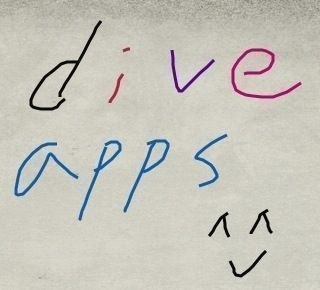 dive
apps